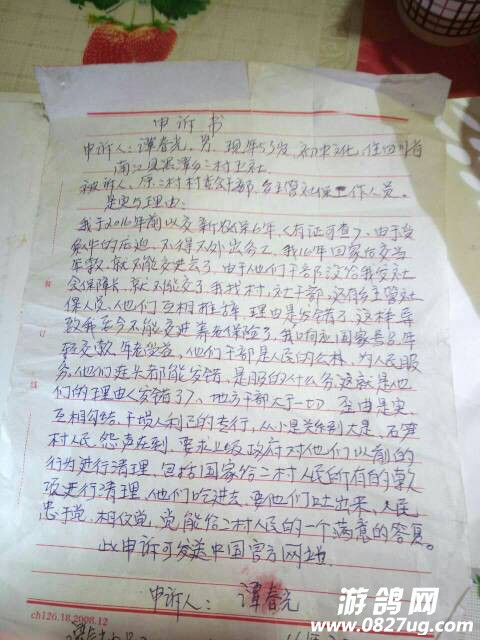 申诉书
申诉人：谭春光，男，现年53岁，初中文化，住四川省
南江县 二村五社
被诉人：原二村村委干部，乡主管社保工作人员。
事实与理由：
我于2016年前以交新农保6年，（有证可查）。由于受
条件的后迫，不得不外出务工，我16年回家后交当
年款，就不能交进去了，由于他们干部没给我发社
会保障卡，就不能交了，我找村，社干部，还有乡主管社
保人员，他们互相推择，理由是发错了，这样导
致我至今不能交进养老保险了，我响应国家号召，年
轻交款，年老受益，他们干部是人民的公仆，为人民服
务，他们连卡都能发错，是服的什么务，这就是他
们的理由（发错了）。地方干部大于一切，歪曲是实，
互相勾结，干损人利己的专行，从小是关系到大是，石笋
村人民，怨声在到，要求上级政府对他们以前的
行为进行清理，包括国家给二村人民的所有的款
项进行清理，他们吃进去，要他们吐出来，人民
忠于党，相仪党，党能给二村人民的一个满意的答复。
此申诉可发送中国官方网站。
申诉人：谭春光
ch126.18.2008.12
游鸽网
www.0827ug.com